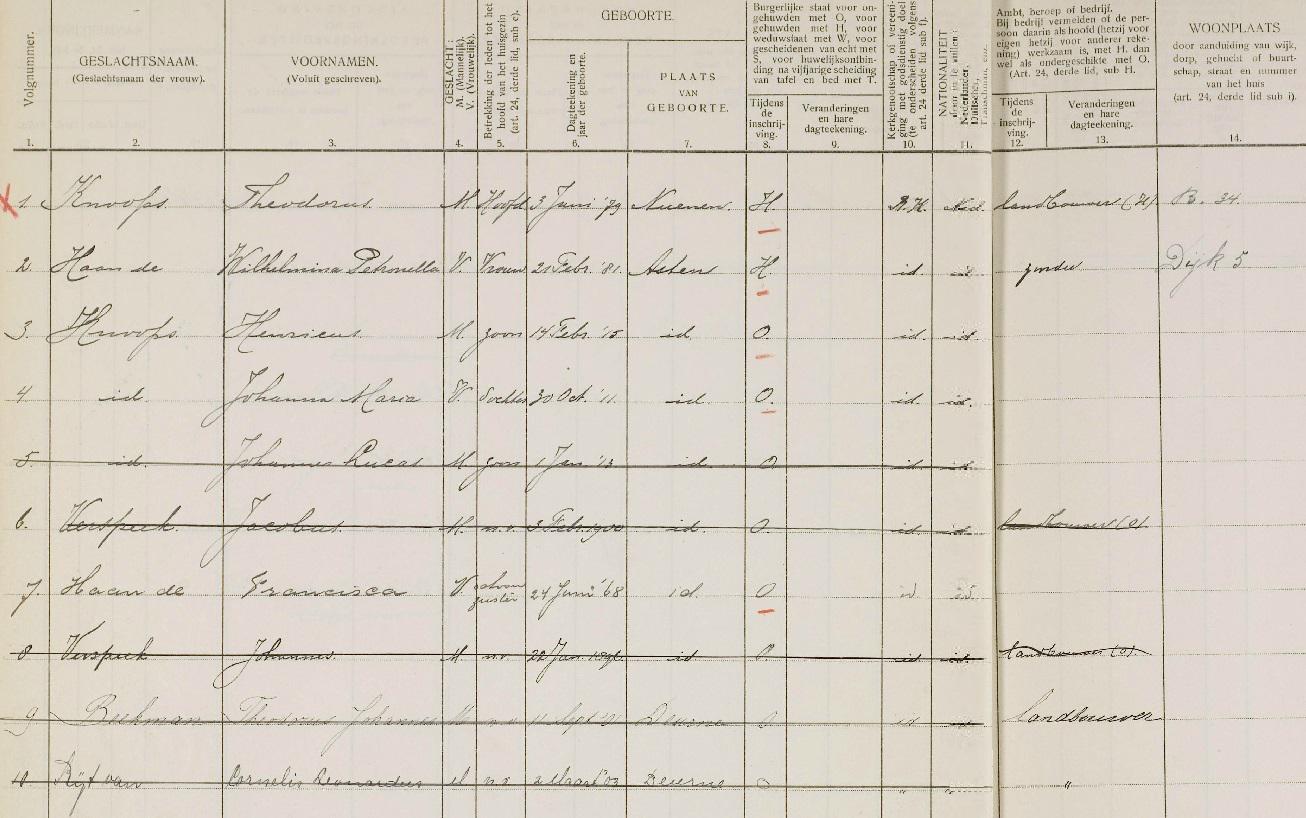 Volgnummer.
GESLACHTSNAAM.
(Geslachtsnaam der vrouw).
VOORNAMEN.
(Voluit geschreven).
GESLACHT:
M. (Mannelijk).
V. (Vrouwelijk).
Betrekking der leden tot het
hoofd van het huisgezin
(art. 24, derde lid, sub c).
GEBOORTE.
Dagteekening en
jaar der geboorte.
PLAATS
VAN
GEBOORTE.
Burgerlijke staat voor on-
gehuwden met O, voor
gehuwden met H, voor
weduwstaat met W, voor
gescheidenen van echt met
S, voor huwelijksontbin-
ding na vijfjarige scheiding
van tafel en bed met T.
Tijdens
de
inschrij-
ving.
Veranderingen
en hare
dagteekening.
Kerkgenootschap of vereeni-
ging met godsdienstig doel
(te onderscheiden volgens
art. 24 derde lid sub f).
NATIONALITEIT
Nederlander,
Duitscher,
enz.
Ambt, beroep of bedrijf.
Bij bedrijf vermelden of de per-
soon daarin als hoofd (hetzij voor
eigen hetzij voor anderer reke-
ning) werkzaam is, met H. dan
wel als ondergeschikte met O.
(Art. 24, derde lid, sub H.
Tijdens
de
inschrij-
ving.
Veranderingen
en hare
dagteekening.
WOONPLAATS
door aanduiding van wijk,
dorp, gehucht of buurt-
schap, straat en nummer
van het huis
(art. 24, derde lid sub i).
1. 2. 3. 4. 5. 6. 7. 8. 9. 10. 11. 12. 13. 14.
1. Knoops Theodorus M. Hoofd 3 Juni '79 Nuenen. H. R.K. Ned. landbouwer (H) B. 34.
2. Haan de Wilhelmina Petronella V. Vrouw 21 Febr. '81. Asten H. id id zonder Dijk 5
3. Knoops Henricus M. zoon 14 Febr. '10 id. O. id. id.
4 id. Johanna Maria V. dochter 30 Oct. '11. id. O. id. id.
5. id. Johannes Lucas M. zoon 1 Jan '13 id. O id id
6. Verspeek. Jacobus M. n.v. 3 Febr. 1900 id. O. id id. landbouwer (O)
7. Haan de Francisca V. schoon
zuster 24 Juni '68 id. O id id.
8 Verspeek Johannes M. n.v. 22 Jan. id O. id id. landbouwer (O).
9 Beekman Theodorus Johannes M n.v 11 Sept Deurne O id landbouwer
10. Rijt van Cornelis Leonardus M n.v 2 Maart '03 Deurne O " " "